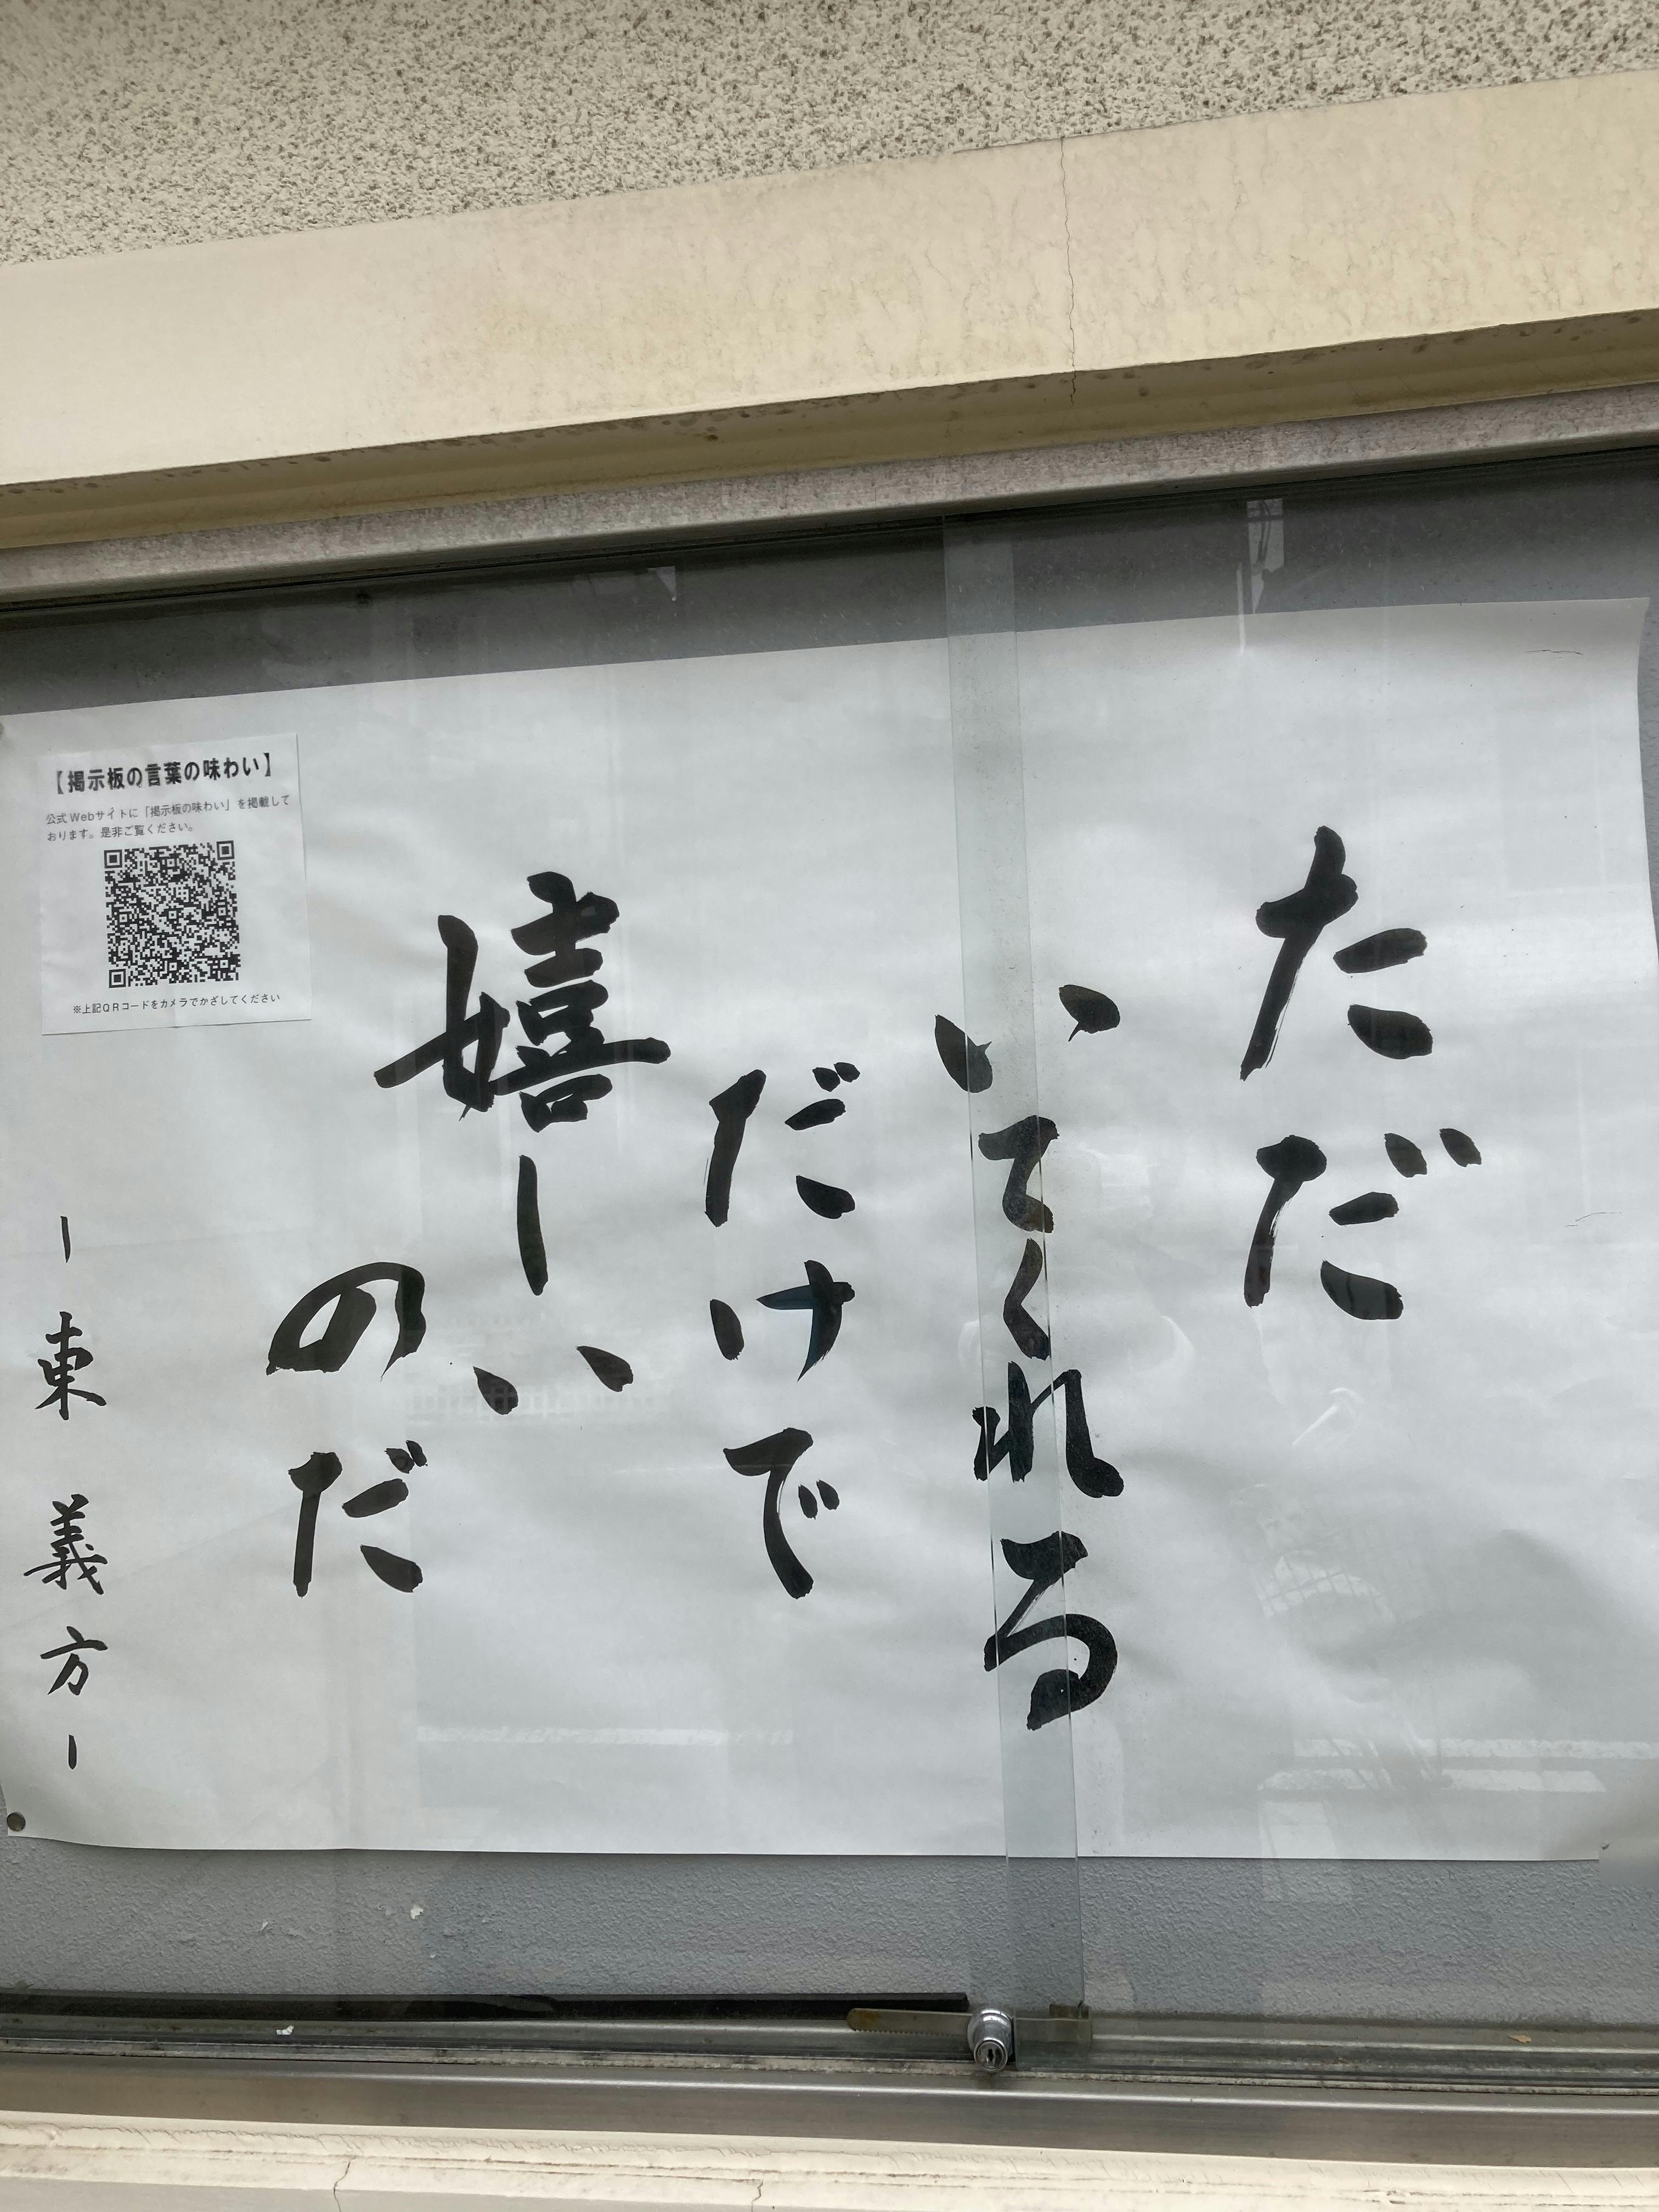 ただ
いてくれる
だけで
嬉しい
のだ
ー東 義方ー
【掲示板の言葉の味わい】
公式Webサイトに「掲示板の味わい」を掲載して
おります。是非ご覧ください。
※上記QRコードをカメラでかざしてください